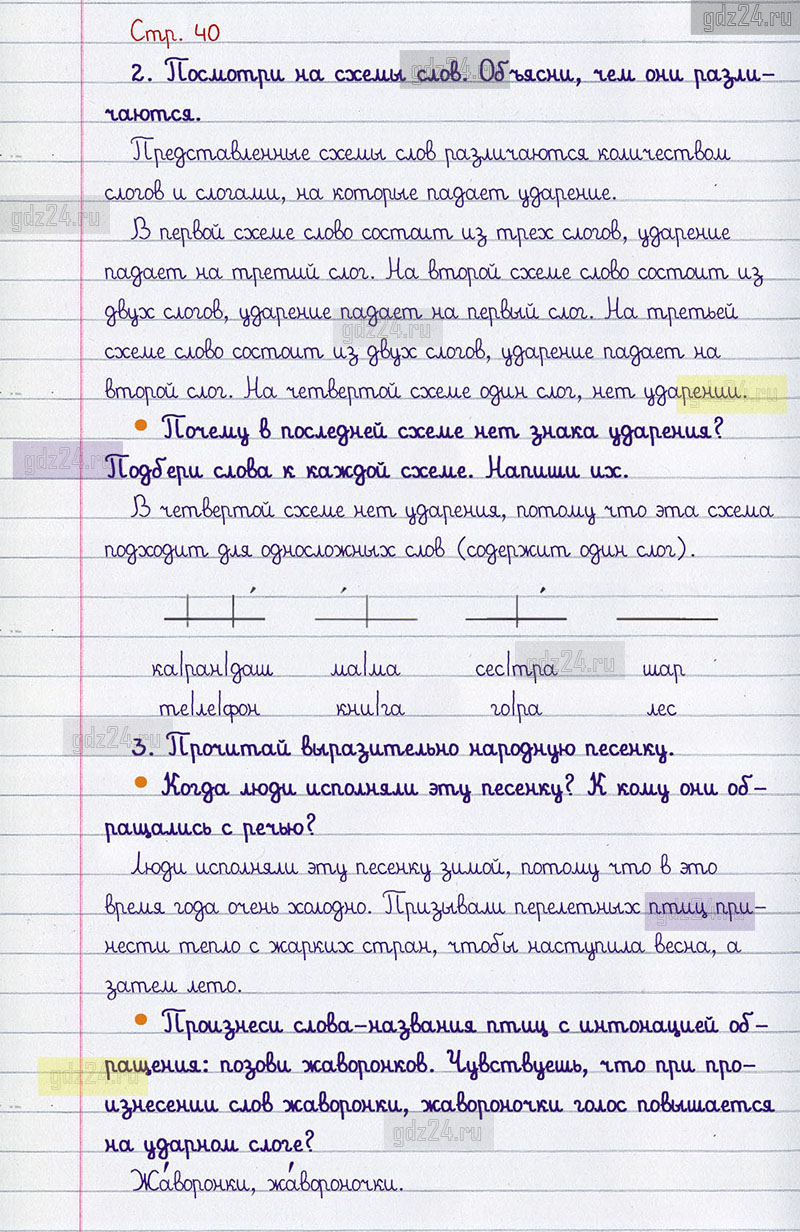 gdz24.ru
Стр. 40
2. Посмотри на схемы слов. Объясни, чем они разли-
gdz24.ru
чаются.
Представленные схемы слов различаются количеством
слогов и слогами, на которые падает ударение.
gdz24.ru
В первой схеме слово состоит из трех слогов, ударение
падает на третий слог. На второй схеме слово состоит из
двух слогов, ударение падает на первый слог. На третьей
gdz24.ru
схеме слово состоит из двух слогов, ударение падает на
второй слог. На четвертой схеме один слог, нет ударении.
gdz24.ru
• Почему в последней схеме нет знака ударения?
gdz24.ru
Подбери слова к каждой схеме. Напиши их.
В четвертой схеме нет ударения, потому что эта схема
подходит для односложных слов (содержит один слог).
ка|ран|даш ма|ма сес|тра шар
gdz24.ru
те|ле|фон кни|га го|ра лес
gdz24.ru
3. Прочитай выразительно народную песенку.
• Когда люди исполняли эту песенку? К кому они об-
ращались с речью?
Люди исполняли эту песенку зимой, потому что в это
время года очень холодно. Призывали перелетных птиц при-
gdz24.ru
нести тепло с жарких стран, чтобы наступила весна, а
затем лето.
• Произнеси слова-названия птиц с интонацией об-
ращения: позови жаворонков. Чувствуешь, что при про-
gdz24.ru
изнесении слов жаворонки, жавороночки голос повышается
gdz24.ru
на ударном слоге?
Жа́воронки, жа́вороночки.